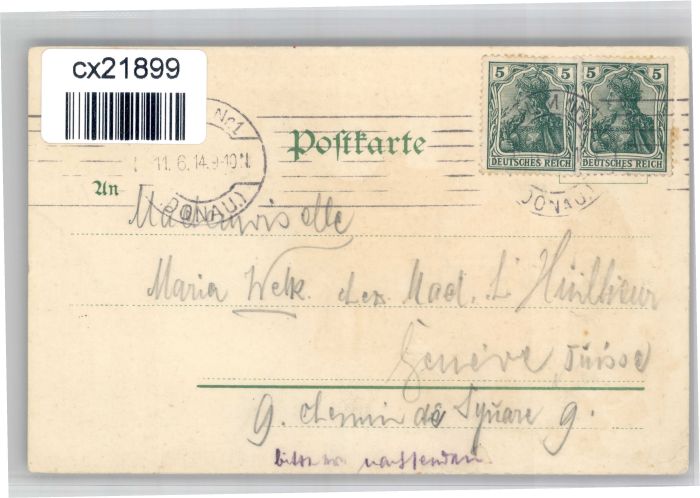 cx21899
No1
11.6.14.9-10
(DONAU)
5 5 5 5
DEUTSCHES REICH DEUTSCHES REICH
(DONAU)
Postkarte
An
Mademoiselle
Maria Welk. chez Mad. L'Huillieur
Genève, Suisse
9. chemin de Square 9.
bitte nachsenden.